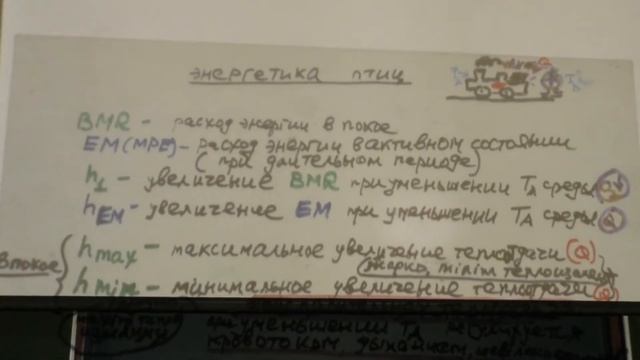 энергетика птиц
BMR - расход энергии в покое
EM(MPE) - расход энергии в активном состоянии
(при длительном периоде)
h⊥ - увеличение BMR при уменьшении TA среды
hEM - увеличение EM при уменьшении TA среды
в покое
hmax - максимальное увеличение теплоотдачи (Q)
жарко,
hmin - минимальное увеличение теплоотдачи (Q)
при уменьшении TA регулируется
кровотоком, дыханием,